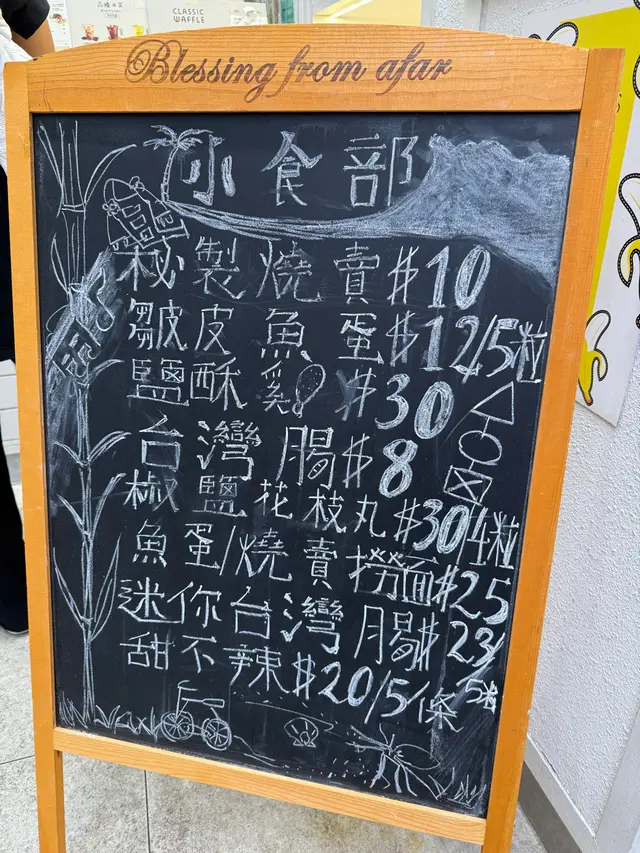 CLASSIC
WAFFLE
Blessing from afar
小食部
秘製燒賣$10
皺皮魚蛋$12/5粒
鹽酥雞$30
台灣腸$8
椒鹽花枝丸$30/4粒
魚蛋/燒賣撈麵$25
迷你台灣腸$23/5粒
甜不辣$20/5條